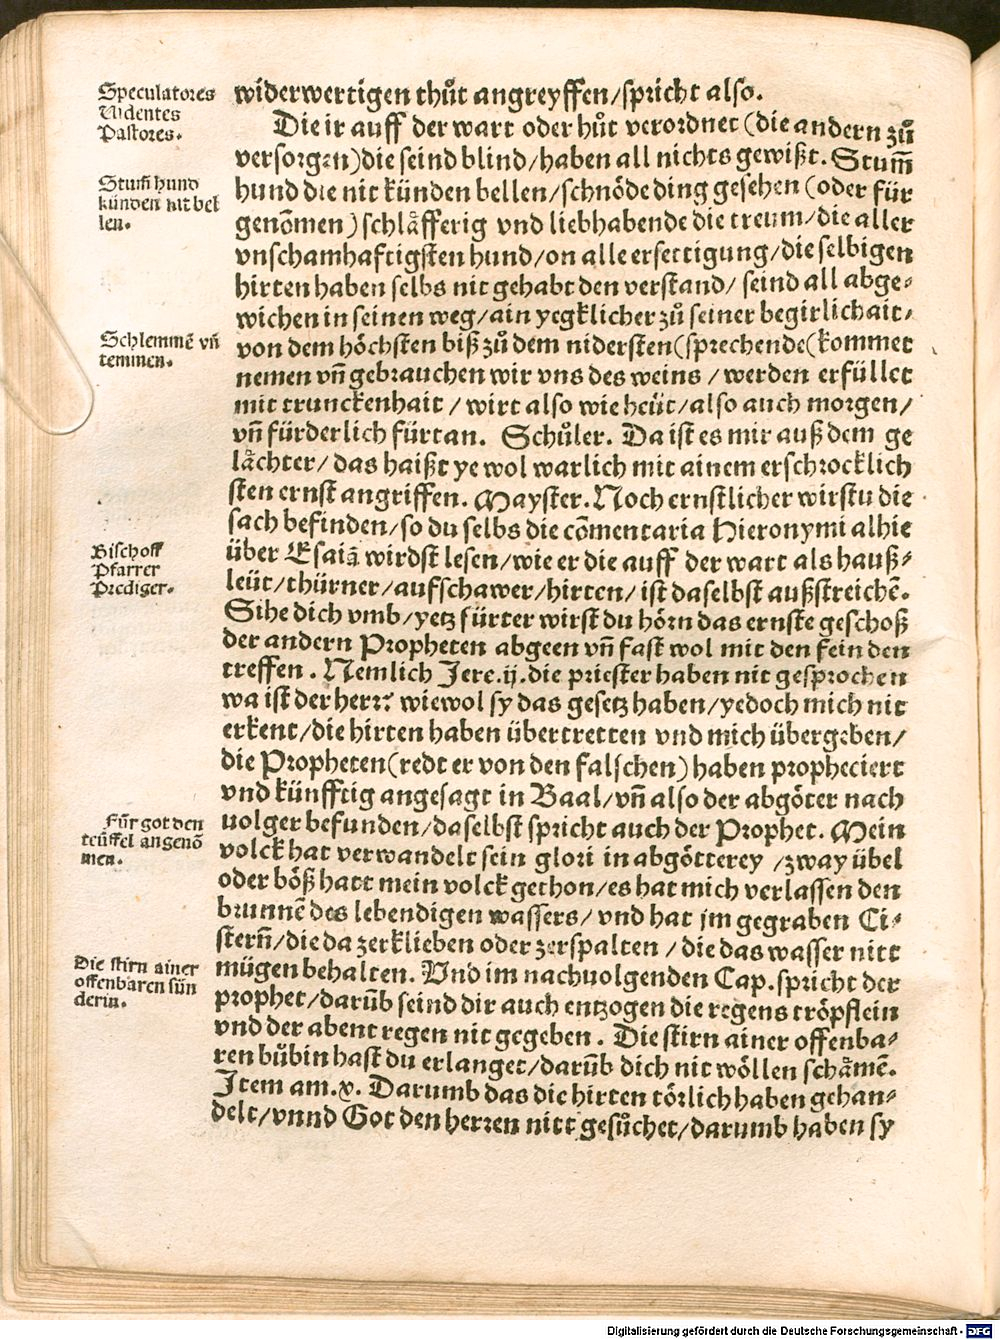 Speculatores
Videntes
Pastores.
Stum̃ hund
künden nit bel
len.
Schlemmē vñ
temmen.
Bischoff
Pfarrer
Prediger.
Für got den
teüffel angenō
men.
Die stirn ainer
offenbaren sün
derin.
widerwertigen thůt angreyffen/spricht also.
Die ir auff der wart oder hůt verordnet (die andern zů
versorgen)die seind blind/haben all nichts gewißt. Stum̃
hund die nit künden bellen/schnöde ding gesehen (oder für
genōmen) schlåfferig vnd liebhabende die treum/die aller
vnschamhaftigsten hund/on alle ersettigung/die selbigen
hirten haben selbs nit gehabt den verstand/ seind all abge⸗
wichen in seinen weg/ain yegklicher zů seiner begirlichait/
von dem höchsten biß zů dem nidersten(sprechende(kommet
nemen vñ gebrauchen wir vns des weins / werden erfüllet
mit trunckenhait / wirt also wie heüt/also auch morgen/
vñ fürderlich fürtan. Schůler. Da ist es mir auß dem ge
låchter/ das haißt ye wol warlich mit ainem erschrocklich
sten ernst angriffen. Mayster. Noch ernstlicher wirstu die
sach befinden/so du selbs die cōmentaria Hieronymi alhie
über Esaiā wirdst lesen/wie er die auff der wart als hauß⸗
leüt/thürner/aufschawer/hirten/ ist daselbst außstreichē.
Sihe dich vmb/yetz fürter wirst du hörn das ernste geschoß
der andern Propheten abgeen vñ fast wol mit den feinden
treffen. Nemlich Jere.ij.die priester haben nit gesprochen
wa ist der herr? wiewol sy das gesetz haben/yedoch mich nit
erkent/die hirten haben übertretten vnd mich übergeben/
die Propheten(redt er von den falschen) haben propheciert
vnd künfftig angesagt in Baal/vñ also der abgöter nach
uolger befunden/daselbst spricht auch der Prophet. Mein
volck hat verwandelt sein glori in abgötterey /zway übel
oder böß hatt mein volck gethon/es hat mich verlassen den
brunnē des lebendigen wassers/ vnd hat jm gegraben Ci⸗
stern̄/die da zerklieben oder zerspalten / die das wasser nitt
mügen behalten. Vnd im nachuolgenden Cap. spricht der
prophet/darūb seind dir auch entzogen die regens tröpflein
vnd der abent regen nit gegeben. Die stirn ainer offenba⸗
ren bůbin hast du erlanget/darūb dich nit wöllen schåmē.
Item am.x. Darumb das die hirten törlich haben gehan⸗
delt/vnnd Got den herren nitt gesůchet/darumb haben sy
Digitalisierung gefördert durch die Deutsche Forschungsgemeinschaft - DFG